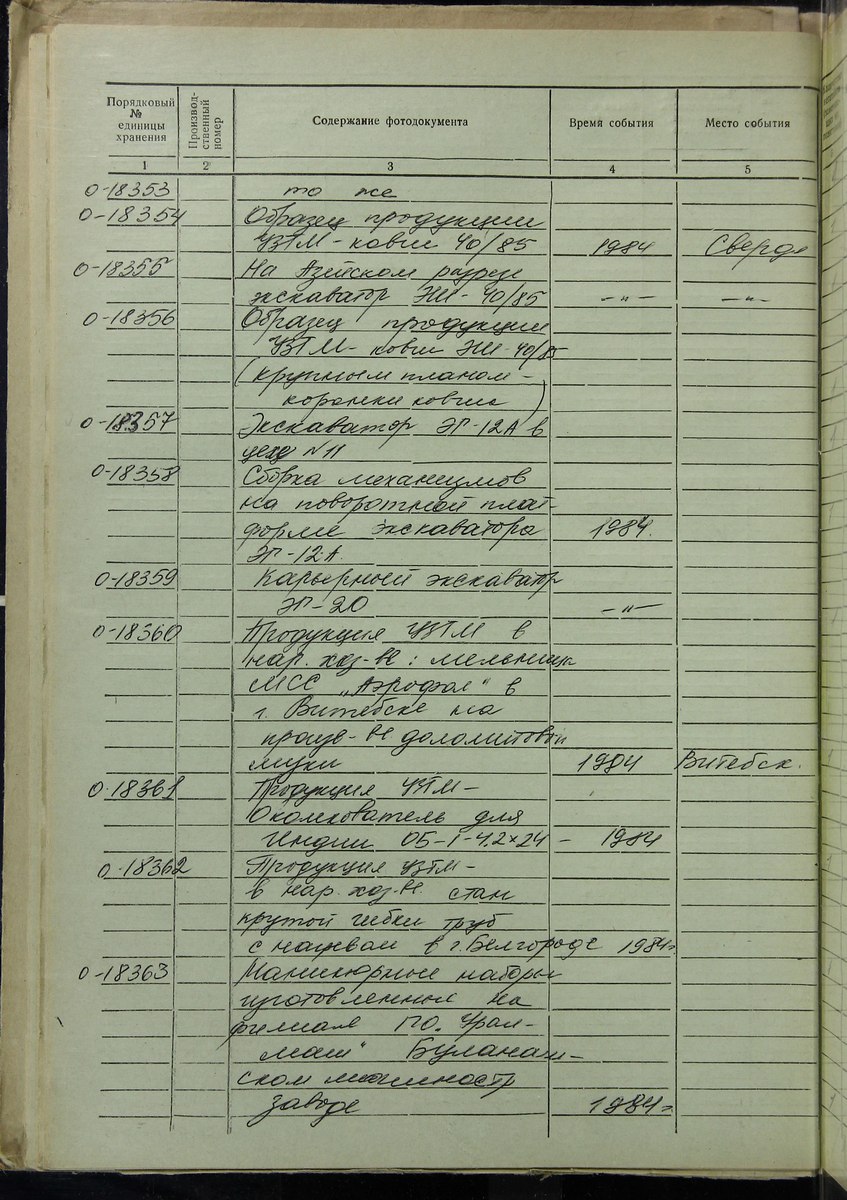 Порядковый № единицы хранения
Производ-ственный номер
Содержание фотодокумента
Время события
Место события
1 2 3 4 5
0-18353 то же
0-18354 Образец продукции
УЗТМ - ковш 40/85 1984 Свердл
0-18355 На Азейском разрезе
экскаватор ЭШ-40/85 -"- -"-
0-18356 Образец продукции
УЗТМ - ковш ЭШ-40/85
(крупным планом -
коронки ковша)
0-18357 Экскаватор ЭГ-12А в
цехе №11
0-18358 Сборка механизмов
на поворотной плат-
форме экскаватора 1984.
ЭГ-12А.
0-18359 Карьерный экскаватор
ЭГ-20 -"-
0-18360 Продукция УЗТМ в
нар. хоз-ве: мельница
МСС "Аэрофол" в
г. Витебске на
произв-ве доломитовой
муки 1984 Витебск.
0-18361 Продукция УЗТМ -
Окомкователь для
Индии ОБ-1-4.2×24 - 1984
0-18362 Продукция УЗТМ -
в нар. хоз-ве. стан
крутой гибки труб
с в г. Белгороде 1984г.
0-18363 Маникюрные наборы
изготовленные на
филиале ПО "Урал-
маш" Буланаш-
ском машиностр
заводе 1984г.